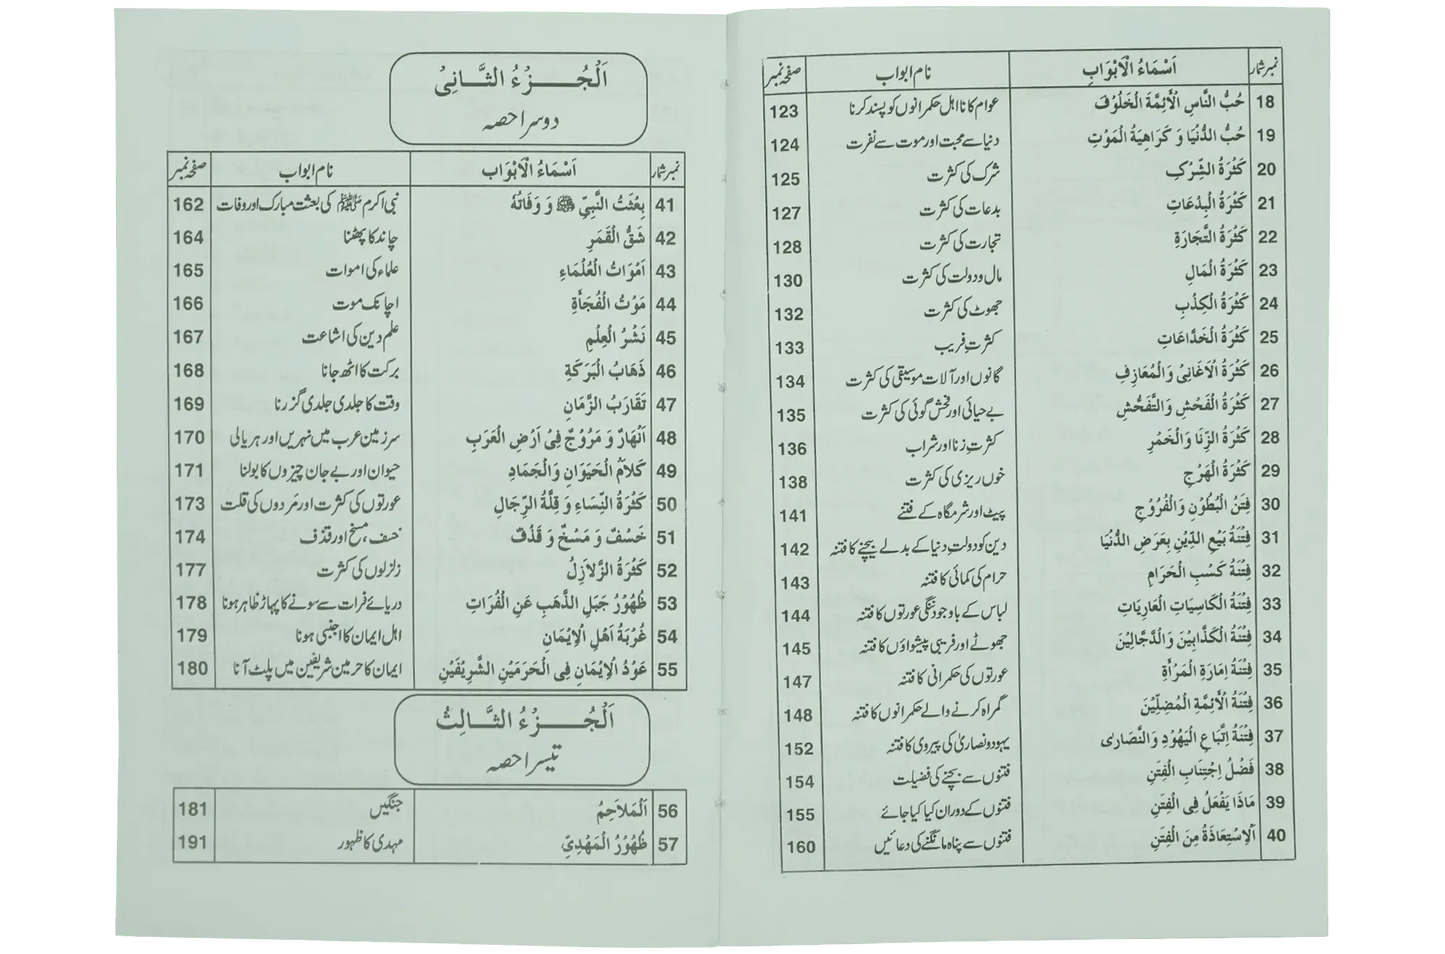 نمبر شمار اَسْمَاءُ الْاَبْوَابِ نام ابواب صفحہ نمبر
18 حُبُّ النَّاسِ الْاَئِمَّةَ الْخَلُوْفَ عوام کا نا اہل حکمرانوں کو پسند کرنا 123
19 حُبُّ الدُّنْيَا وَ كَرَاهِيَةُ الْمَوْتِ دنیا سے محبت اور موت سے نفرت 124
20 كَثْرَةُ الشِّرْكِ شرک کی کثرت 125
21 كَثْرَةُ الْبِدْعَاتِ بدعات کی کثرت 127
22 كَثْرَةُ التِّجَارَةِ تجارت کی کثرت 128
23 كَثْرَةُ الْمَالِ مال و دولت کی کثرت 130
24 كَثْرَةُ الْكِذْبِ جھوٹ کی کثرت 132
25 كَثْرَةُ الْخَدَّاعَاتِ کثرتِ فریب 133
26 كَثْرَةُ الْاَغَانِىْ وَالْمَعَازِفِ گانوں اور آلات موسیقی کی کثرت 134
27 كَثْرَةُ الْفَحْشِ وَالتَّفَحُّشِ بے حیائی اور فحش گوئی کی کثرت 135
28 كَثْرَةُ الزِّنَا وَالْخَمْرِ کثرتِ زنا اور شراب 136
29 كَثْرَةُ الْهَرْجِ خوں ریزی کی کثرت 138
30 فِتَنُ الْبُطُوْنِ وَالْفُرُوْجِ پیٹ اور شرمگاہ کے فتنے 141
31 فِتْنَةُ بَيْعِ الدِّيْنِ بِعَرَضِ الدُّنْيَا دین کو دولتِ دنیا کے بدلے بیچنے کا فتنہ 142
32 فِتْنَةُ كَسْبِ الْحَرَامِ حرام کی کمائی کا فتنہ 143
33 فِتْنَةُ الْكَاسِيَاتِ الْعَارِيَاتِ لباس کے باوجود ننگی عورتوں کا فتنہ 144
34 فِتْنَةُ الْكَذَّابِيْنَ وَالدَّجَّالِيْنَ جھوٹے اور فریبی پیشواؤں کا فتنہ 145
35 فِتْنَةُ اِمَارَةِ الْمَرْأَةِ عورتوں کی حکمرانی کا فتنہ 147
36 فِتْنَةُ الْاَئِمَّةِ الْمُضِلِّيْنَ گمراہ کرنے والے حکمرانوں کا فتنہ 148
37 فِتْنَةُ اِتِّبَاعِ الْيَهُوْدِ وَالنَّصَارٰى یہود و نصاریٰ کی پیروی کا فتنہ 152
38 فَضْلُ اِجْتِنَابِ الْفِتَنِ فتنوں سے بچنے کی فضیلت 154
39 مَاذَا يَفْعَلُ فِى الْفِتَنِ فتنوں کے دوران کیا کیا جائے 155
40 اَلْاِسْتِعَاذَةُ مِنَ الْفِتَنِ فتنوں سے پناہ مانگنے کی دعائیں 160
اَلْجُـــزْءُ الثَّـــانِىْ
دوسرا حصہ
نمبر شمار اَسْمَاءُ الْاَبْوَابِ نام ابواب صفحہ نمبر
41 بِعْثَتُ النَّبِىِّ ﷺ وَ وَفَاتُهُ نبی اکرم ﷺ کی بعثت مبارک اور وفات 162
42 شَقُّ الْقَمَرِ چاند کا پھٹنا 164
43 اَمْوَاتُ الْعُلَمَاءِ علماء کی اموات 165
44 مَوْتُ الْفُجَأَةِ اچانک موت 166
45 نَشْرُ الْعِلْمِ علم دین کی اشاعت 167
46 ذَهَابُ الْبَرَكَةِ برکت کا اٹھ جانا 168
47 تَقَارَبُ الزَّمَانِ وقت کا جلدی جلدی گزرنا 169
48 اَنْهَارٌ وَ مَرُوْجٌ فِىْ اَرْضِ الْعَرَبِ سرزمین عرب میں نہریں اور ہریالی 170
49 كَلَامُ الْحَيَوَانِ وَالْجَمَادِ حیوان اور بے جان چیزوں کا بولنا 171
50 كَثْرَةُ النِّسَاءِ وَ قِلَّةُ الرِّجَالِ عورتوں کی کثرت اور مَردوں کی قلت 173
51 خَسْفٌ وَ مَسْخٌ وَ قَذْفٌ خسف، مسخ اور قذف 174
52 كَثْرَةُ الزَّلَازِلُ زلزلوں کی کثرت 177
53 ظُهُوْرُ جَبَلِ الذَّهَبِ عَنِ الْفُرَاتِ دریائے فرات سے سونے کا پہاڑ ظاہر ہونا 178
54 غُرْبَةُ اَهْلِ الْاِيْمَانِ اہل ایمان کا اجنبی ہونا 179
55 عَوْدُ الْاِيْمَانِ فِى الْحَرَمَيْنِ الشَّرِيْفَيْنِ ایمان کا حرمین شریفین میں پلٹ آنا 180
اَلْجُـــزْءُ الثَّـــالِثُ
تیسرا حصہ
56 اَلْمَلَاحِمُ جنگیں 181
57 ظُهُوْرُ الْمَهْدِىِّ مہدی کا ظہور 191